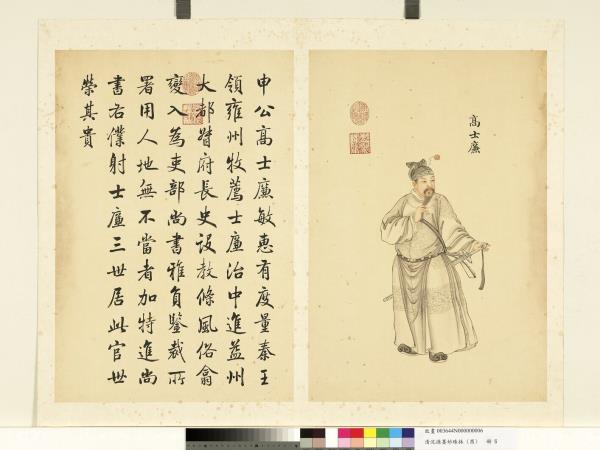 高士廉
申公高士廉敏惠有度量秦王
領雍州牧薦士廉治中進益州
大都督府長史設教條風俗翕
變入為吏部尚書雅負鑒裁所
署用人地無不當者加特進尚
書右僕射士廉三世居此官世
榮其貴
故畫003644N000000006